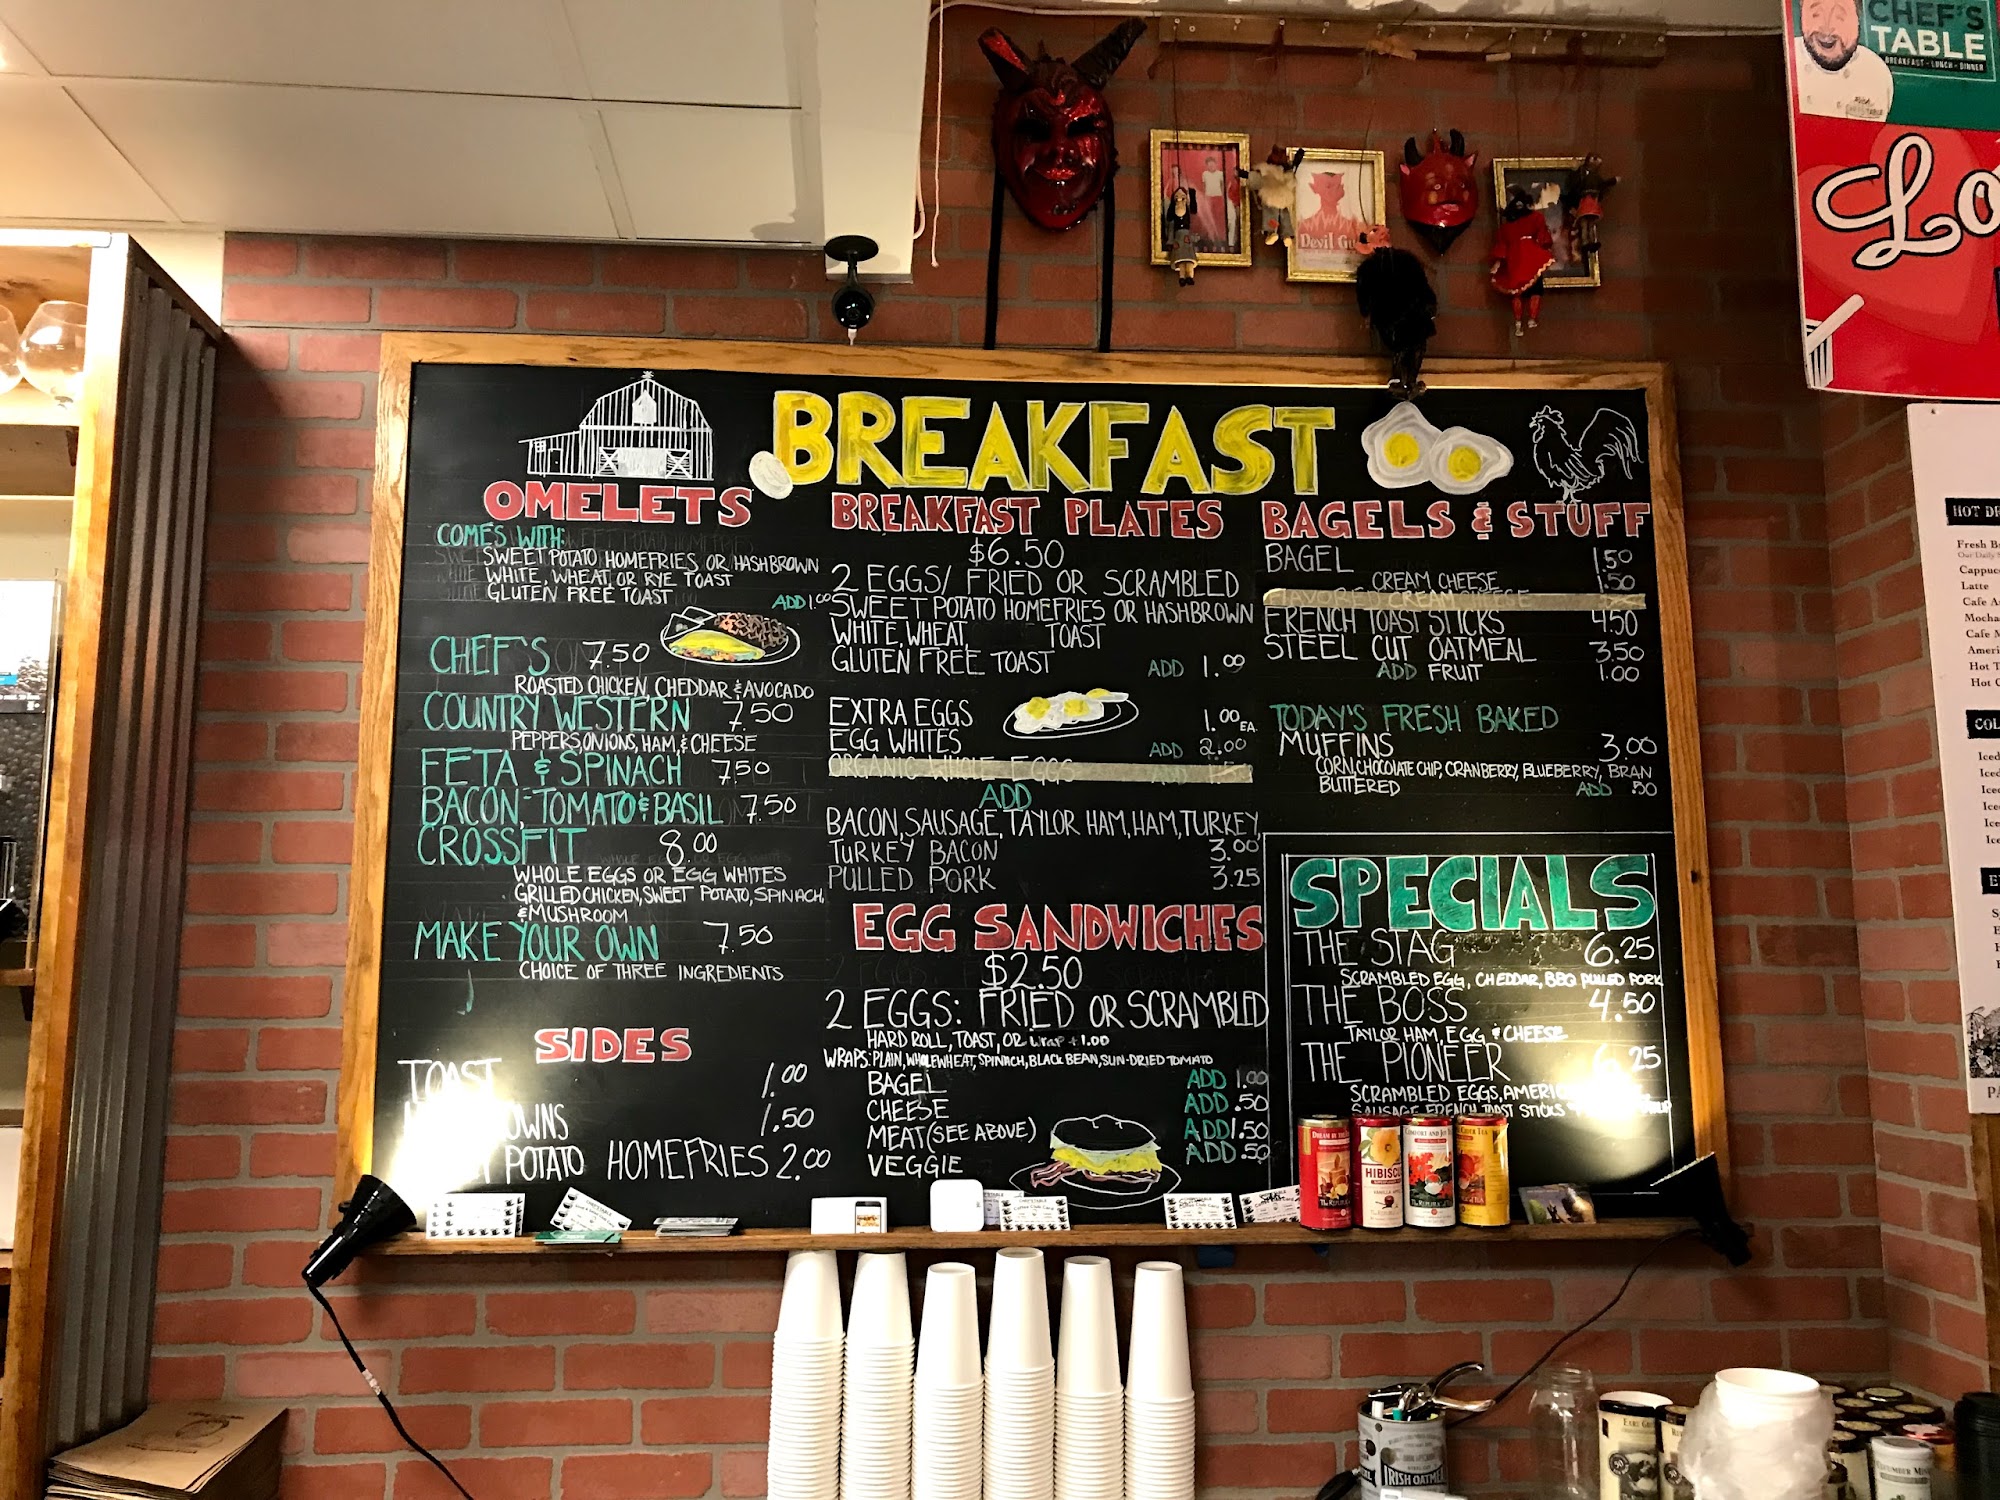 BREAKFAST
OMELETS
COMES WITH:
SWEET POTATO HOMEFRIES OR HASHBROWN
WHITE, WHEAT, OR RYE TOAST
GLUTEN FREE TOAST ADD 1.00
CHEF'S 7.50
ROASTED CHICKEN, CHEDDAR & AVOCADO
COUNTRY WESTERN 7.50
PEPPERS, ONIONS, HAM, & CHEESE
FETA & SPINACH 7.50
BACON, TOMATO & BASIL 7.50
CROSSFIT 8.00
WHOLE EGGS OR EGG WHITES
GRILLED CHICKEN, SWEET POTATO, SPINACH,
& MUSHROOM
MAKE YOUR OWN 7.50
CHOICE OF THREE INGREDIENTS
SIDES
TOAST 1.00
OWNS 1.50
POTATO HOMEFRIES 2.00
BREAKFAST PLATES
$6.50
2 EGGS/ FRIED OR SCRAMBLED
SWEET POTATO HOMEFRIES OR HASHBROWN
WHITE, WHEAT, TOAST
GLUTEN FREE TOAST ADD 1.00
EXTRA EGGS 1.00 EA.
EGG WHITES ADD 2.00
ORGANIC WHOLE EGGS
ADD
BACON, SAUSAGE, TAYLOR HAM, HAM, TURKEY,
TURKEY BACON 3.00
PULLED PORK 3.25
EGG SANDWICHES
$2.50
2 EGGS: FRIED OR SCRAMBLED
HARD ROLL, TOAST, OR Wrap +1.00
WRAPS: PLAIN, WHOLEWHEAT, SPINACH, BLACK BEAN, SUN-DRIED TOMATO
BAGEL ADD 1.00
CHEESE ADD .50
MEAT (SEE ABOVE) ADD 1.50
VEGGIE ADD .50
BAGELS & STUFF
BAGEL 1.50
CREAM CHEESE 1.50
FLAVORED CREAM CHEESE
FRENCH TOAST STICKS 4.50
STEEL CUT OATMEAL 3.50
ADD FRUIT 1.00
TODAY'S FRESH BAKED
MUFFINS 3.00
CORN, CHOCOLATE CHIP, CRANBERRY, BLUEBERRY, BRAN
BUTTERED ADD .50
SPECIALS
THE STAG 6.25
SCRAMBLED EGG, CHEDDAR, BBQ PULLED PORK
THE BOSS 4.50
TAYLOR HAM, EGG & CHEESE
THE PIONEER 6.25
SCRAMBLED EGGS,
SAUSAGE, FRENCH TOAST STICKS
CHEF'S
TABLE
BREAKFAST - LUNCH - DINNER
Lo
Devil
HOT
Fresh
Latte
Hot
Iced
HIBISCUS
COMFORT AND JOY
IRISH OATMEAL